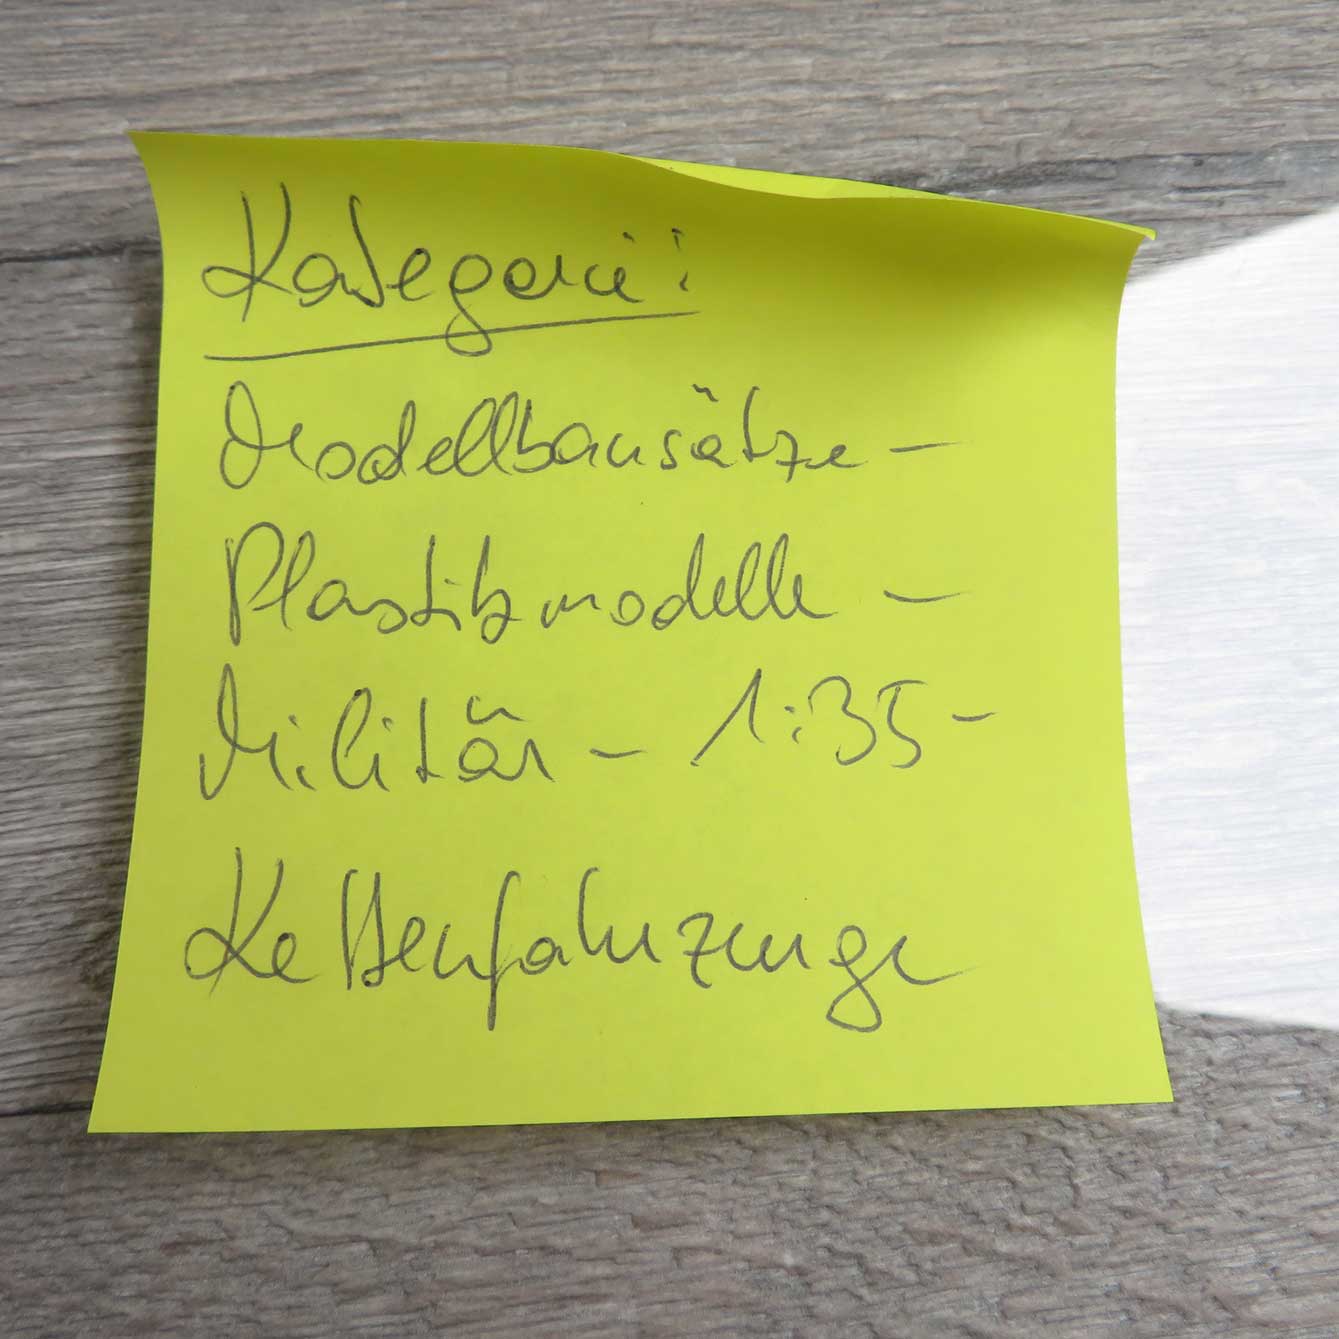 Kategorie:
Modellbausätze –
Plastikmodelle –
Militär – 1:35 –
Kettenfahrzeuge